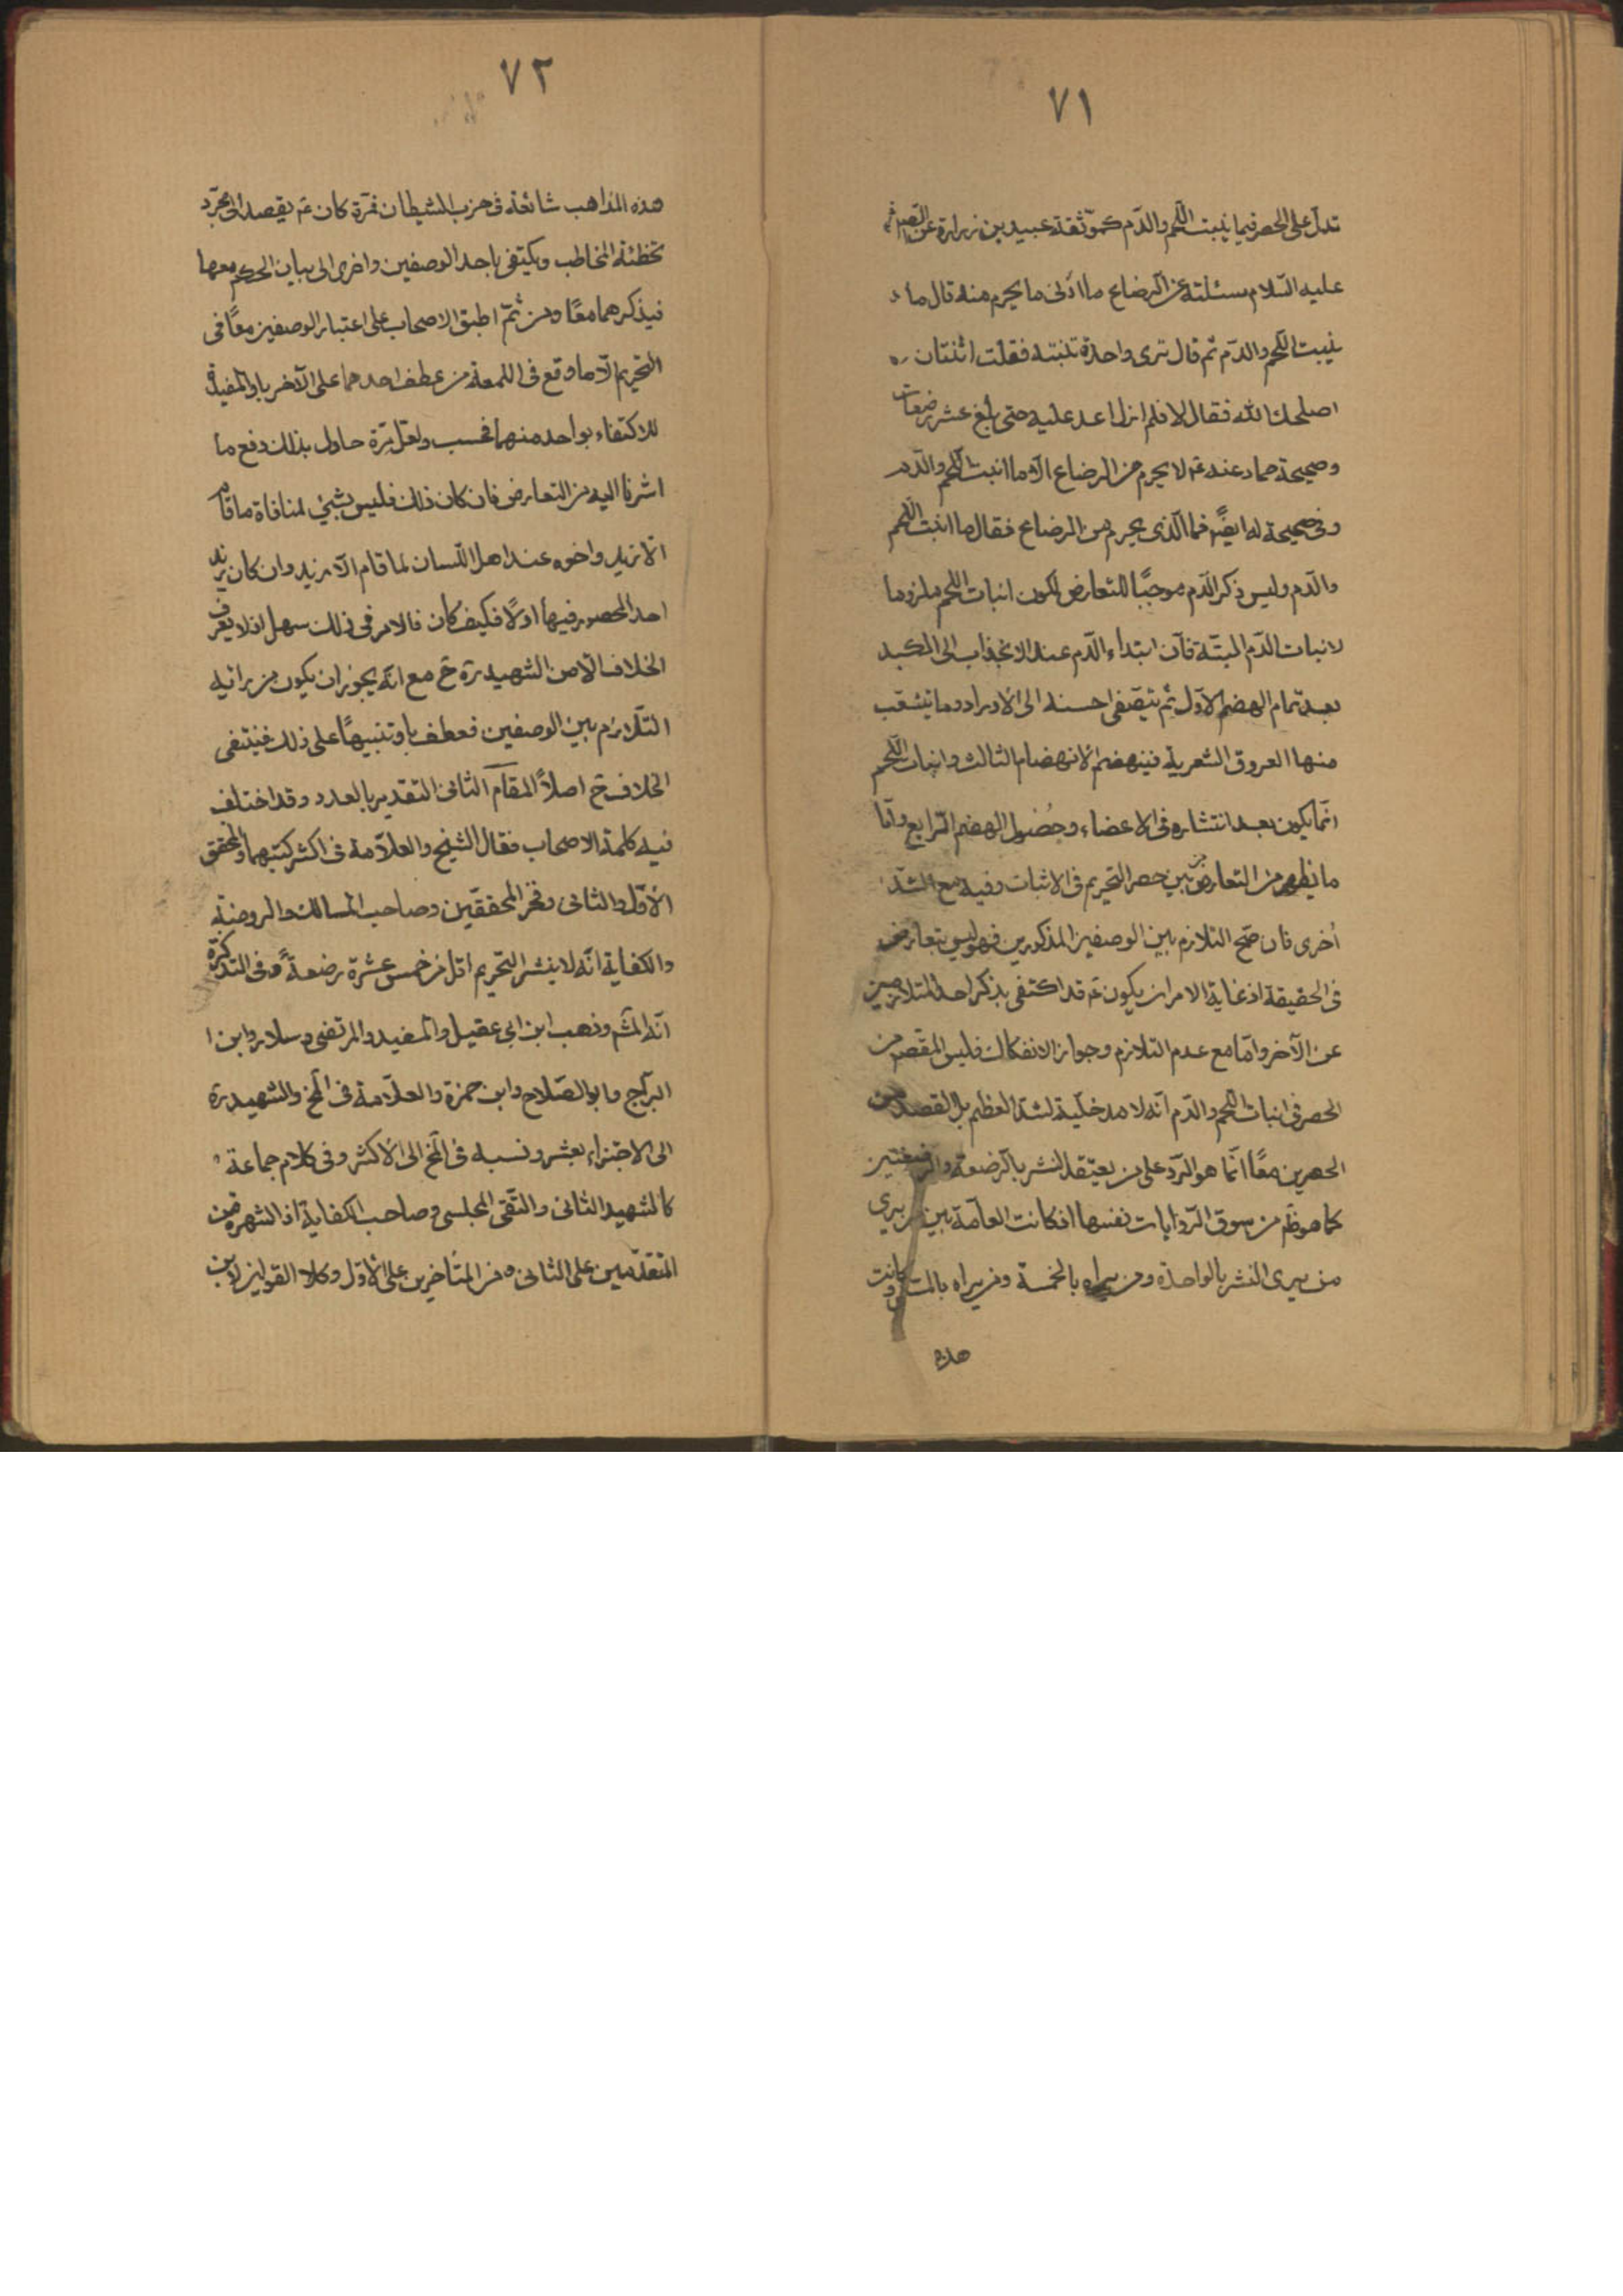 ٧١
تدل على الحصر فيما ينبت اللحم والدّم كموّثقة عبيد بن زرارة عن الصادق
عليه السّلام سئلته عن الرضاع ما ادنى ما يحرم منه قال ما
ينبت اللحم والدّم ثم قال ترى واحدة تنبته فقلت اثنتان
اصلحك الله فقال لا فلم ازل اعد عليه حتى بلغ عشر رضعات
وصحيحة حماد عنه ع لا يحرم من الرضاع الّا ما انبت اللحم والدّم
وفى صحيحة له ايضًا فما الّذى يحرم من الرضاع فقال ما انبت اللحم
والدّم وليس ذكر الدّم موجبًا للتعارض لكون انبات اللحم ملزوما
لانبات الدّم البتّة فانّ ابتداء الدّم عند الانجذاب الى الكبد
بعد تمام الهضم الاوّل ثم يتصّفى احسنه الى الاوراد وما يتشعّب
منها العروق الشعرية فينهضم الانهضام الثالث وانبات اللّحم
انّما يكون بعد انتشاره فى الاعضاء وحُصُول الهضم الرّابع وامّا
ما يظهر من التعارض بين حصر التحريم فى الاثبات وفيه مع الشدّ
اُخرى فان صحّ التلازم بين الوصفين المذكورين فهو ليس بتعارض
فى الحقيقة اذ غاية الامر ان يكون ع قد اكتفى بذكر احد المتلازمين
عن الآخر وامّا مع عدم التلازم وجواز الانفكاك فليس المقصد من
الحصر فى انبات اللحم والدّم انّه لا مدخليّة لشدّ العظم بل القصد من
الحصرين معًا انّما هو الردّ على من يعتقد النشر بالرضعة والرضعتين
كما هو ظ من سوق الرّوايات نفسها اذ كانت العامّة بين من يرى
من يرى النشر بالواحدة ومن يراه بالخمسة ومن يراه بالمسّ وكانت
هذه
٧٢
هذه المذاهب شائعة فى حزب الشيطان فمرّة كان ع يقصد الى مجرّد
تخطئة المخاطب ويكتفى باحد الوصفين واخرى الى بيان الحكم معها
فيذكرهما معًا ومن ثمّ اطبق الاصحاب على اعتبار الوصفين معًا فى
التحريم الّا ما وقع فى اللمعة من عطف احدهما على الآخر باو المفيدة
للاكتفاء بواحد منهما فحسب ولعلّ ره حاول بذلك دفع ما
اشرنا اليه من التعارض فان كان ذلك فليس بشئ لمنافاة ما قام
الّا زيد واخوه عند اهل اللّسان لما قام الّا زيد وان كان زيد
احد المحصور فيها اولًا فكيف كان فالامر فى ذلك سهل اذ لا يعرف
الخلاف الّا من الشهيد ره ح مع انّه يجوز ان يكون من رائيه
التلازم بين الوصفين فعطف باو تنبيهًا على ذلك فينتفى
الخلاف ح اصلاً المقام الثانى التقدير بالعدد وقد اختلف
فيه كلمة الاصحاب فقال الشيخ والعلّامة فى اكثر كتبهما والمحقق
الاوّل والثانى وفخر المحققين وصاحب المسالك والروضة
والكفاية انّه لا ينشر التحريم اقل من خمس عشرة رضعةً وفى التذكرة
انّه المشهور وذهب ابن ابى عقيل والمفيد والمرتضى وسلار وابن
البرّاج وابو الصّلاح وابن حمزة والعلّامة فى المخ والشهيد ره
الى الاجتزاء بعشر ونسبه فى المخ الى الاكثر وفى كلام جماعة
كالشهيد الثانى والتّقى المجلسى وصاحب الكفاية انّ الشهرة من
المتقدّمين على الثانى ومن المتاخرين على الاوّل وكلا القولين